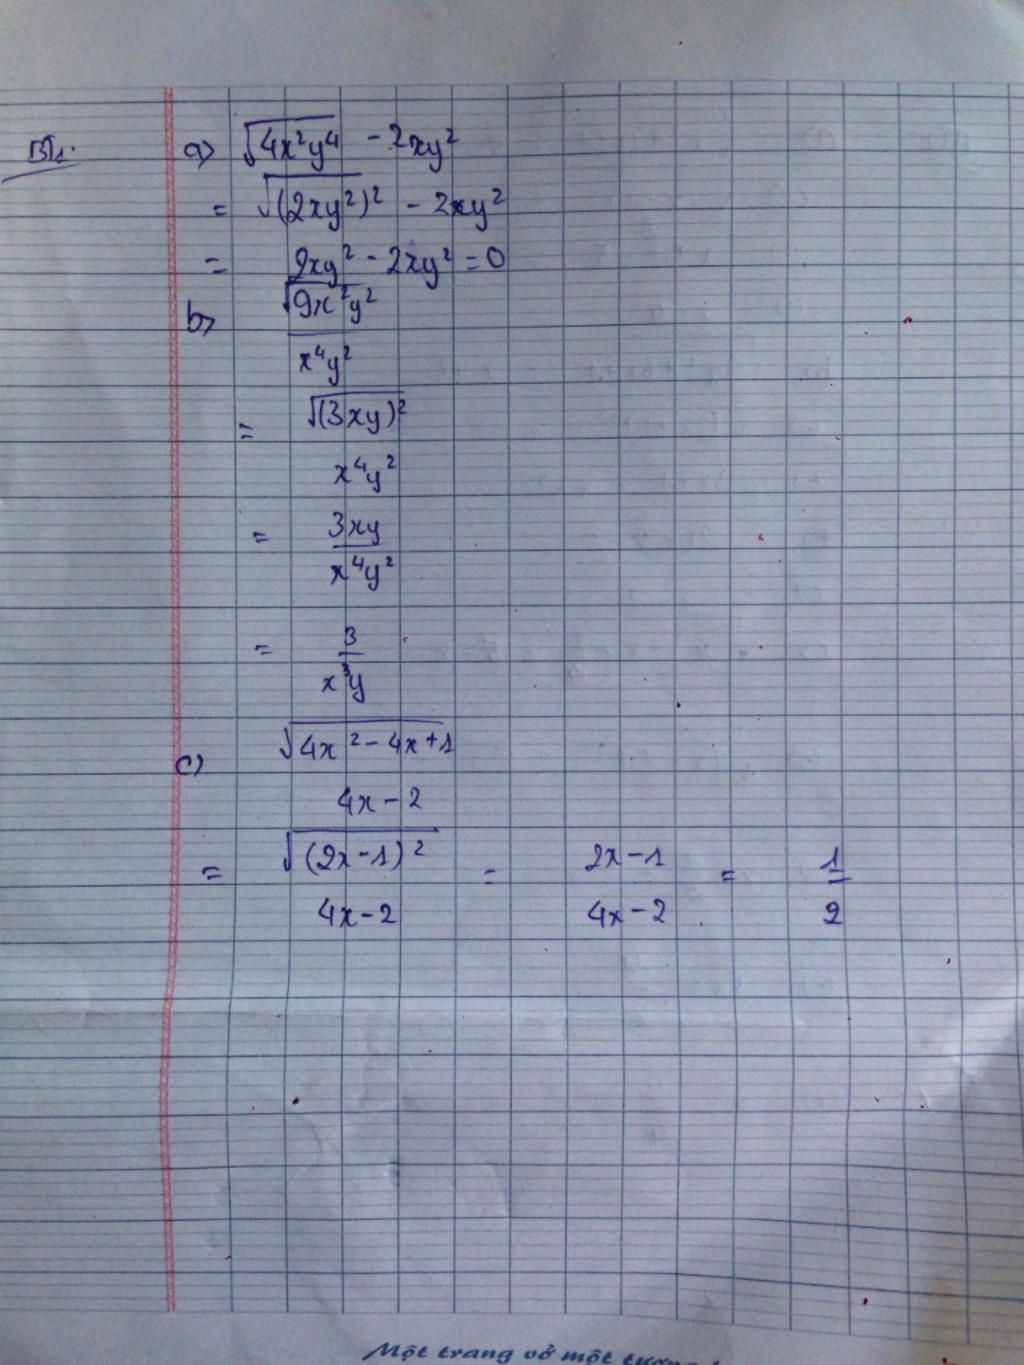 BT1:
a) √4x²y⁴ - 2xy²
= √(2xy²)² - 2xy²
= 2xy² - 2xy² = 0
b) √9x²y²
x⁴y²
= √(3xy)²
x⁴y²
= 3xy
x⁴y²
= 3
x³y
c) √4x² - 4x + 1
4x - 2
= √(2x - 1)² = 2x - 1 = 1
4x - 2 4x - 2 2
Một trang vở một tương